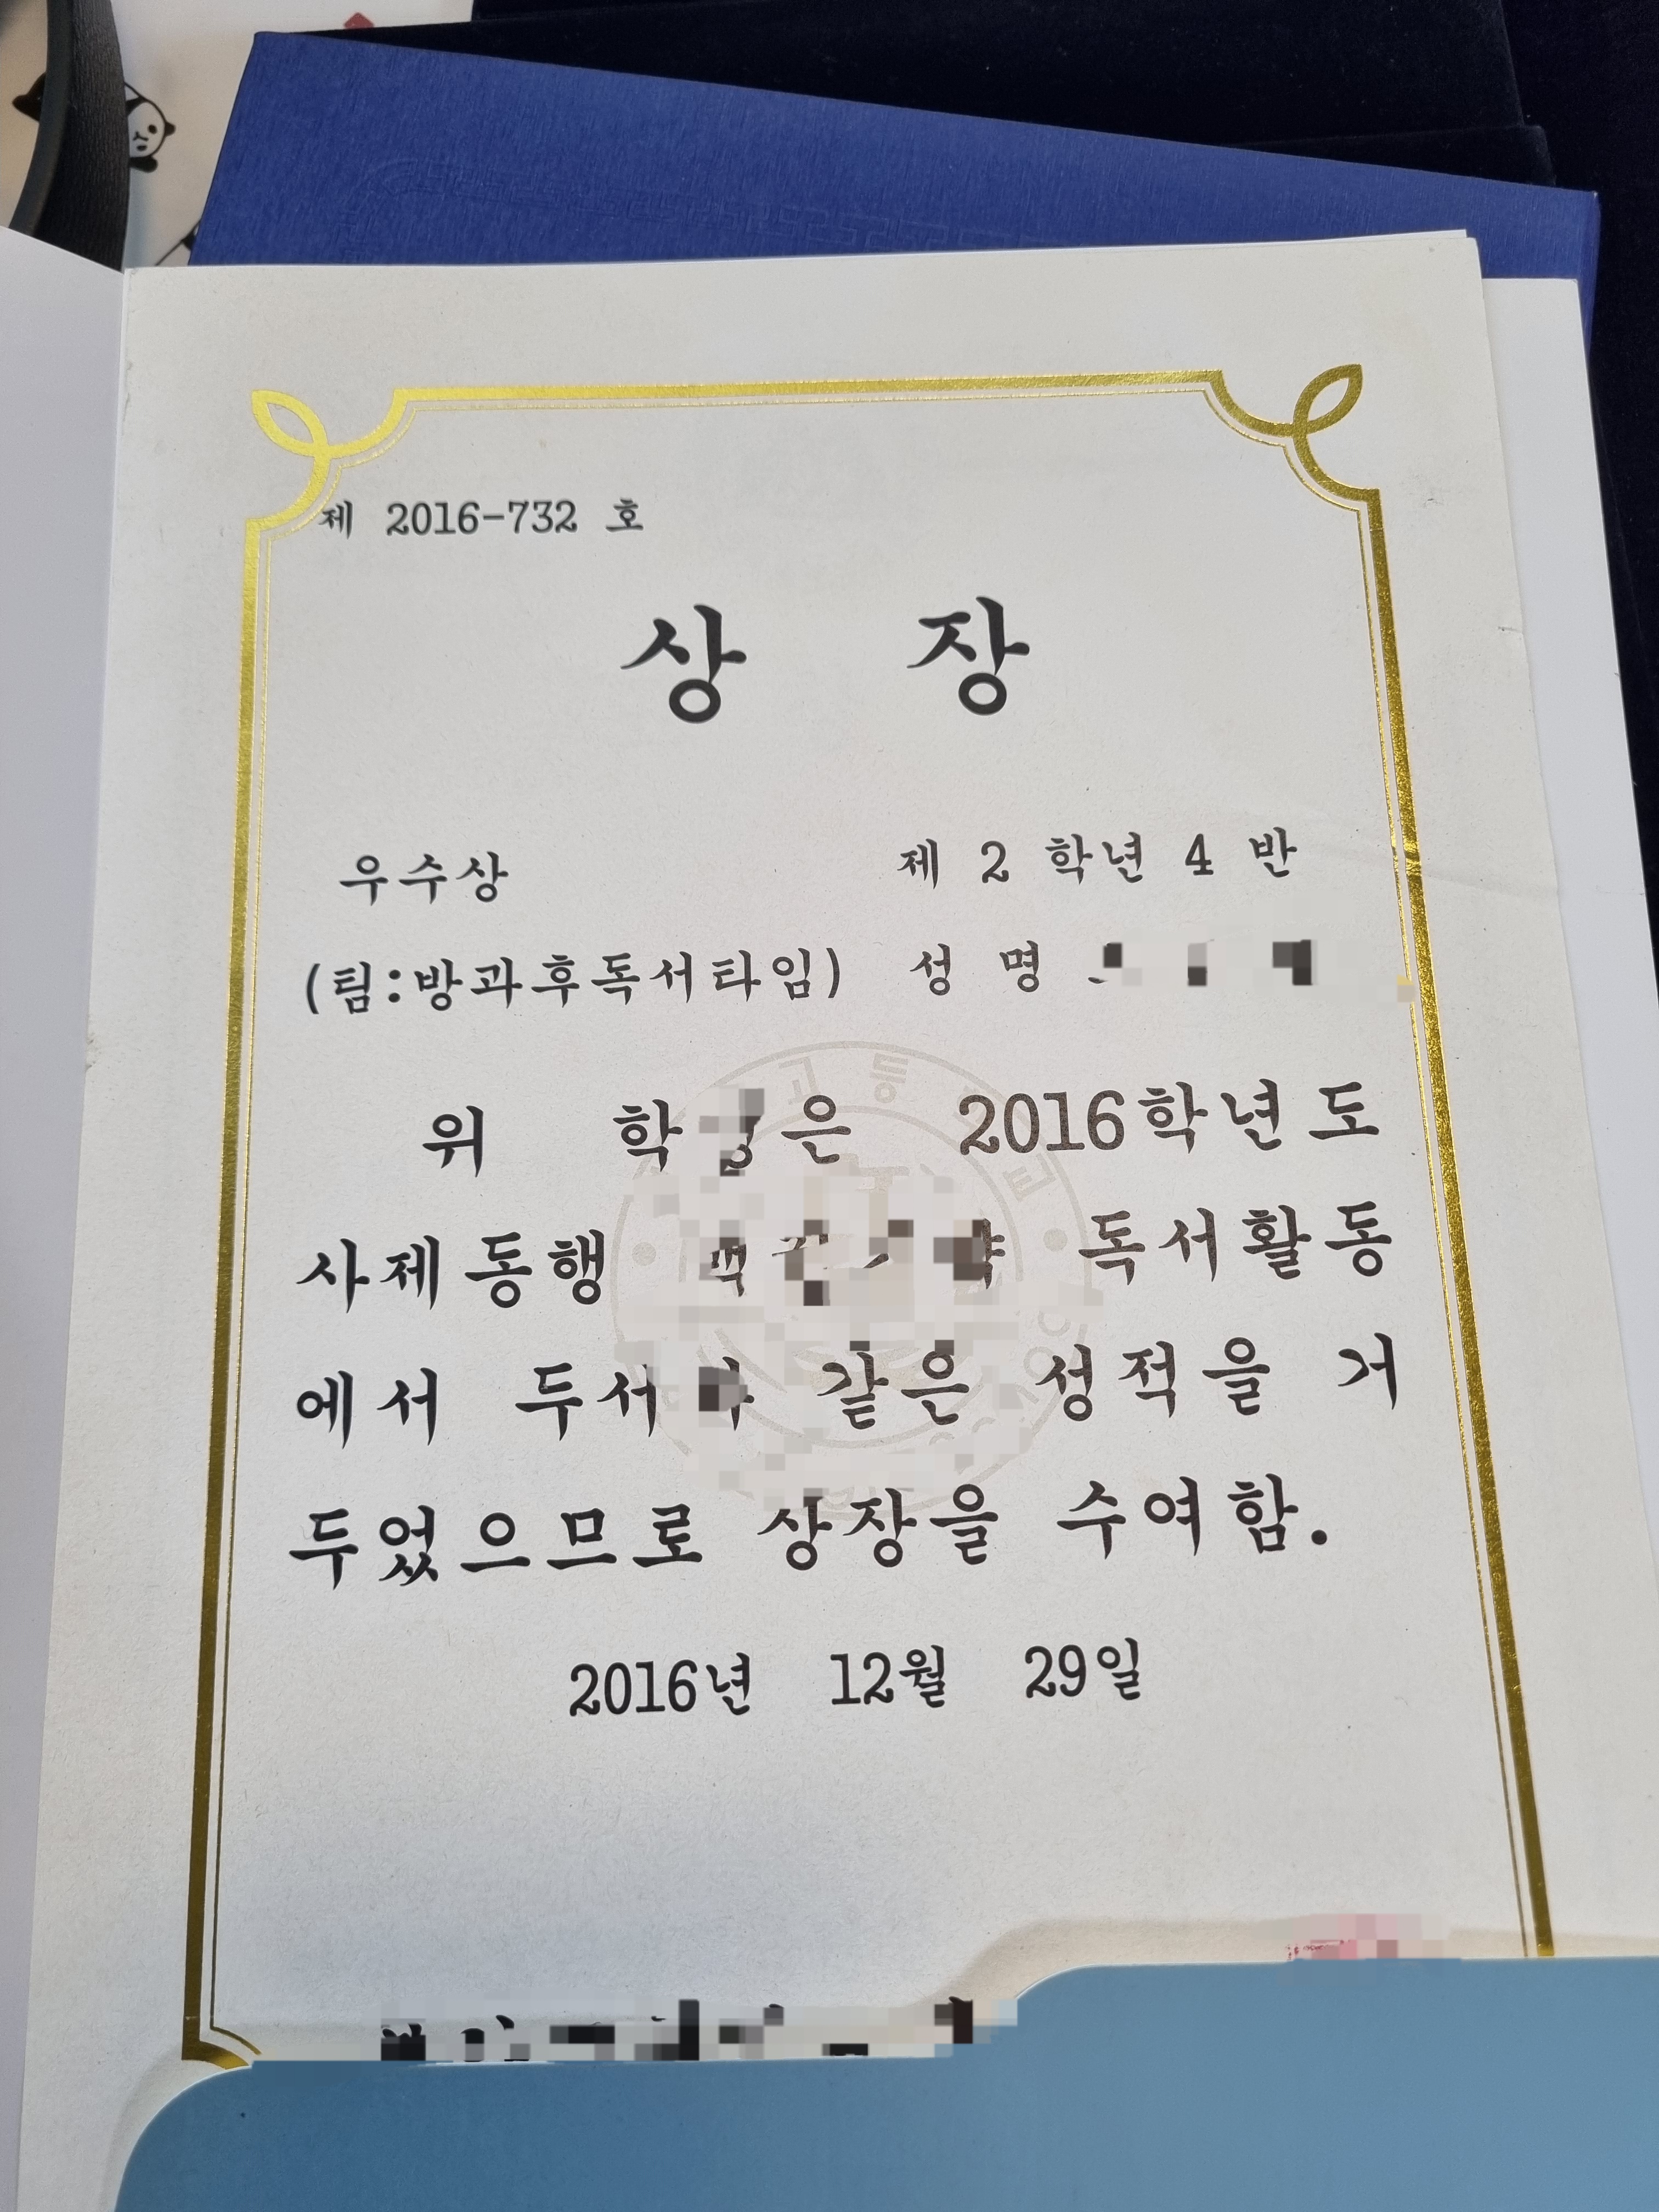 제 2016-732 호
상 장
우수상 제 2 학년 4 반
(팀:방과후독서타임) 성 명
위 은 2016학년도
사제동행 독서활동
에서 같은 성적을 거
두었으므로 상장을 수여함.
2016년 12월 29일